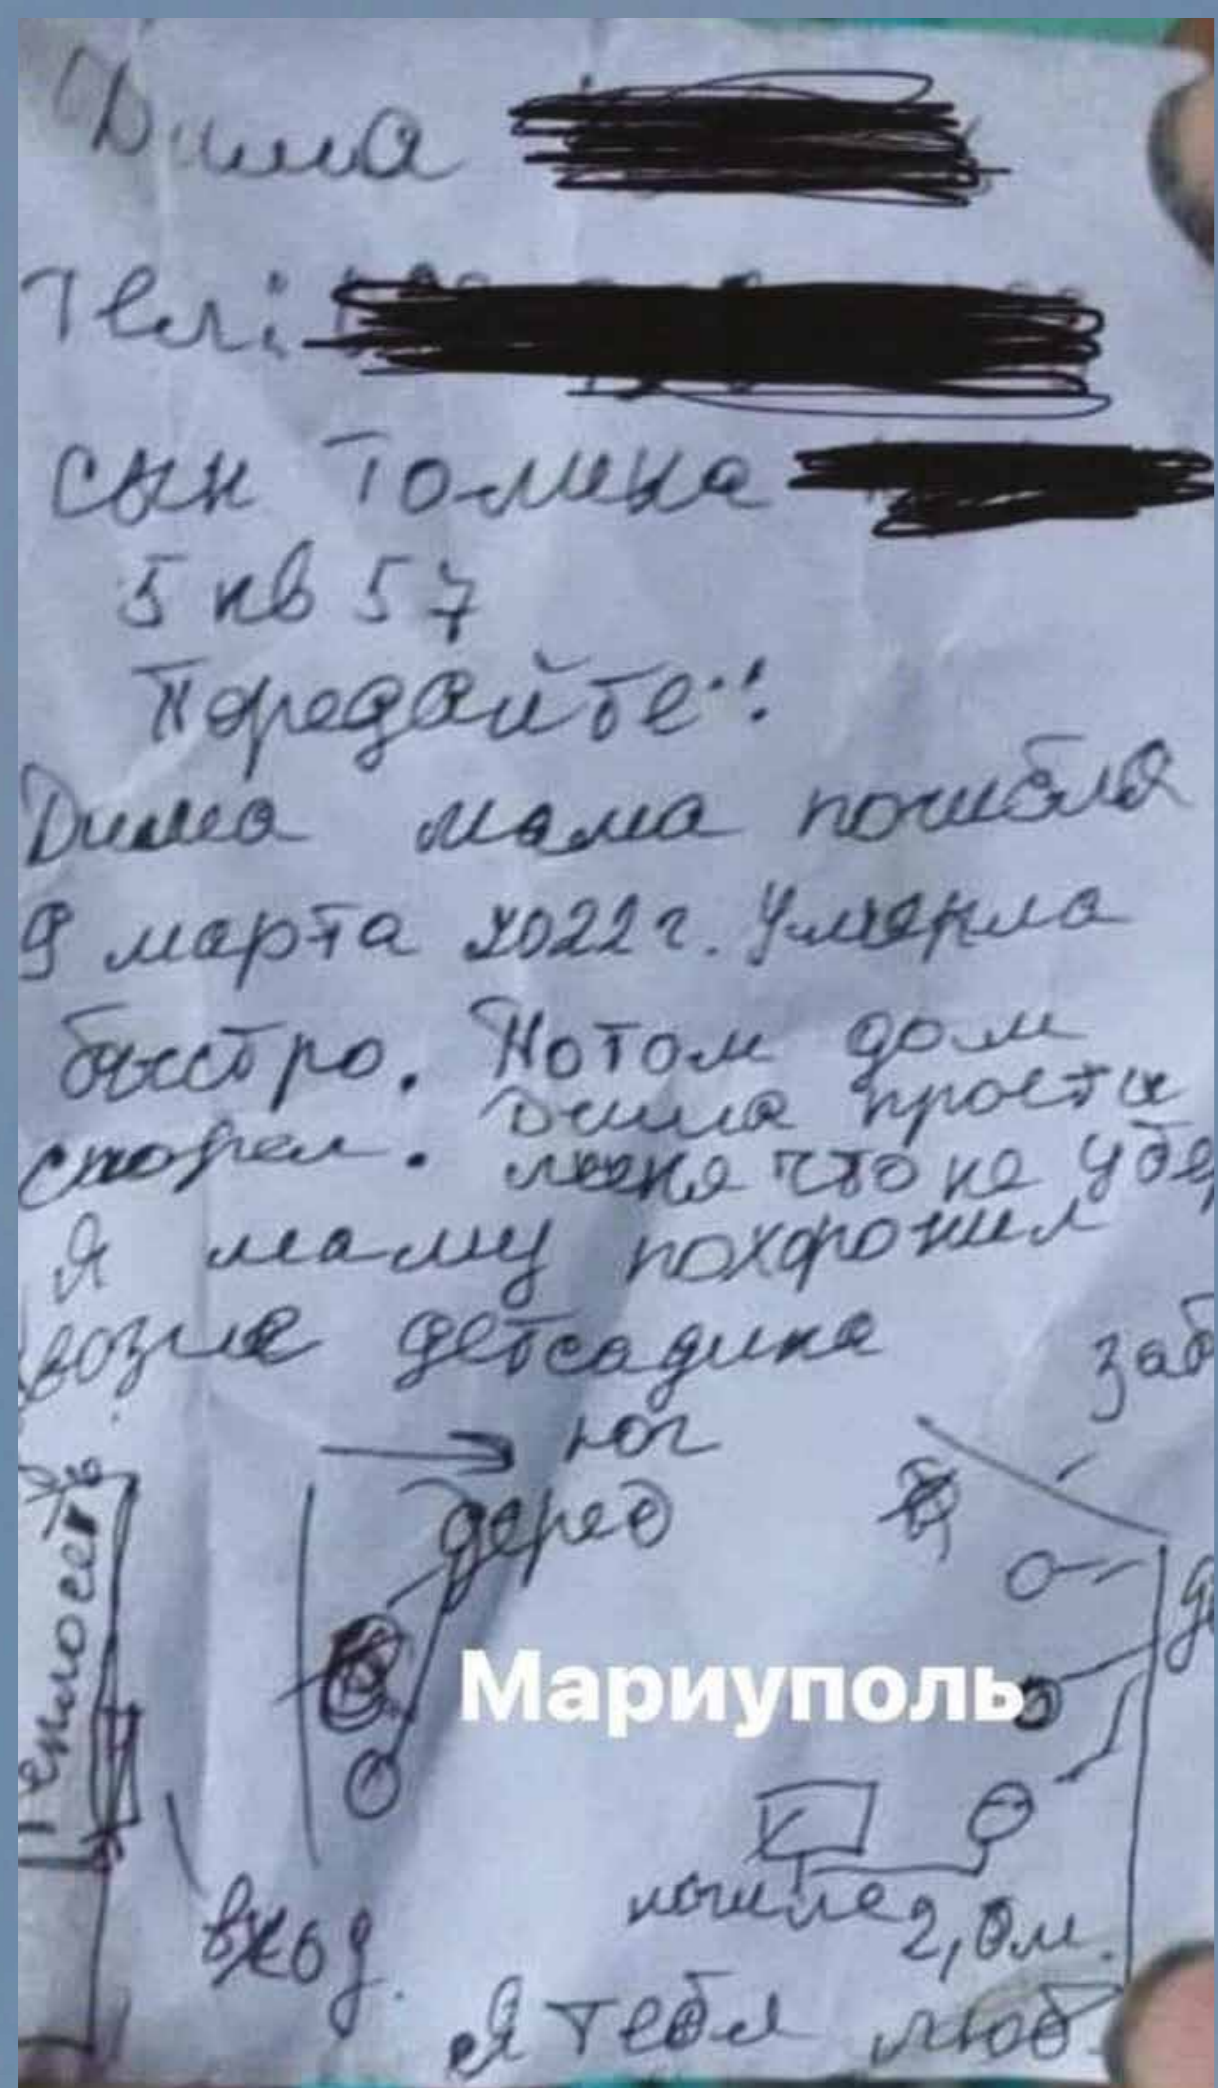 Дима
Тел:
сын Толика
5 кв 57
Передайте!!
Дима мама погибла
9 марта 2022 г. Умерла
быстро. Потом дом
сгорел. Дима прости
меня что не убе
Я маму похоронил
возле детсадика
заб
→ юг
дерев
Теплосеть
Мариуполь
могила 2,0 м.
вход.
Я тебя люб